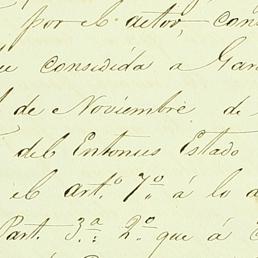 por el actor, con
considida a Gar
de Noviembre de
del Entonces Estado
el art.º 7º á lo a
Part. 3.ª 2º que á